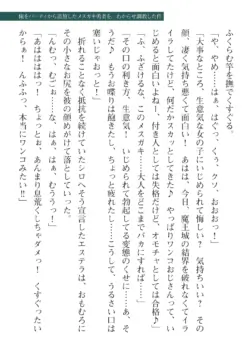 俺をパーティから追放したメスガキ勇者を、わからせ調教した件
ふくらむ竿を無配でくすぐる。
「や、やめ……はぁ、ぐっ、クソ、おおおっ！」
「大事なところ、生意気な女の子にいじめられて、気持ちいい？
顔、凄く気持ち悪くて面白いわよ。あはは、今日、魔王城の結界を破れなくてイ
ラしてたけど、何だかスカッとしてきた♪　やっぱりワンコおじさんって、い
じめると面白いわよねー。付き人としては失格だけど、オモチャとしては合格♪」
「ふ、ふざけるな、このメスガキ……大人をどこまでバカにすれば……」
「その口の利き方、生意気！　いじめられて勃起してる変態のくせに……
でもいいわ。もうお喋りは飽きたし、ちょっと疲れたし……こうして、うるさい口は
塞いじゃおっと！」
　折れることなく抵抗を続けていたシロへそう宣言したエステラは、おもむろに
その小さなお尻を彼の顔面に乗せて体重をかけて落としていった。
「んむっ、むごっ……ん、んふぅっ！」
「あはははっ！　あんまり息荒くしちゃダメっ！　くすぐったい
っ、んぷっ、本当にワンコみたい!!」